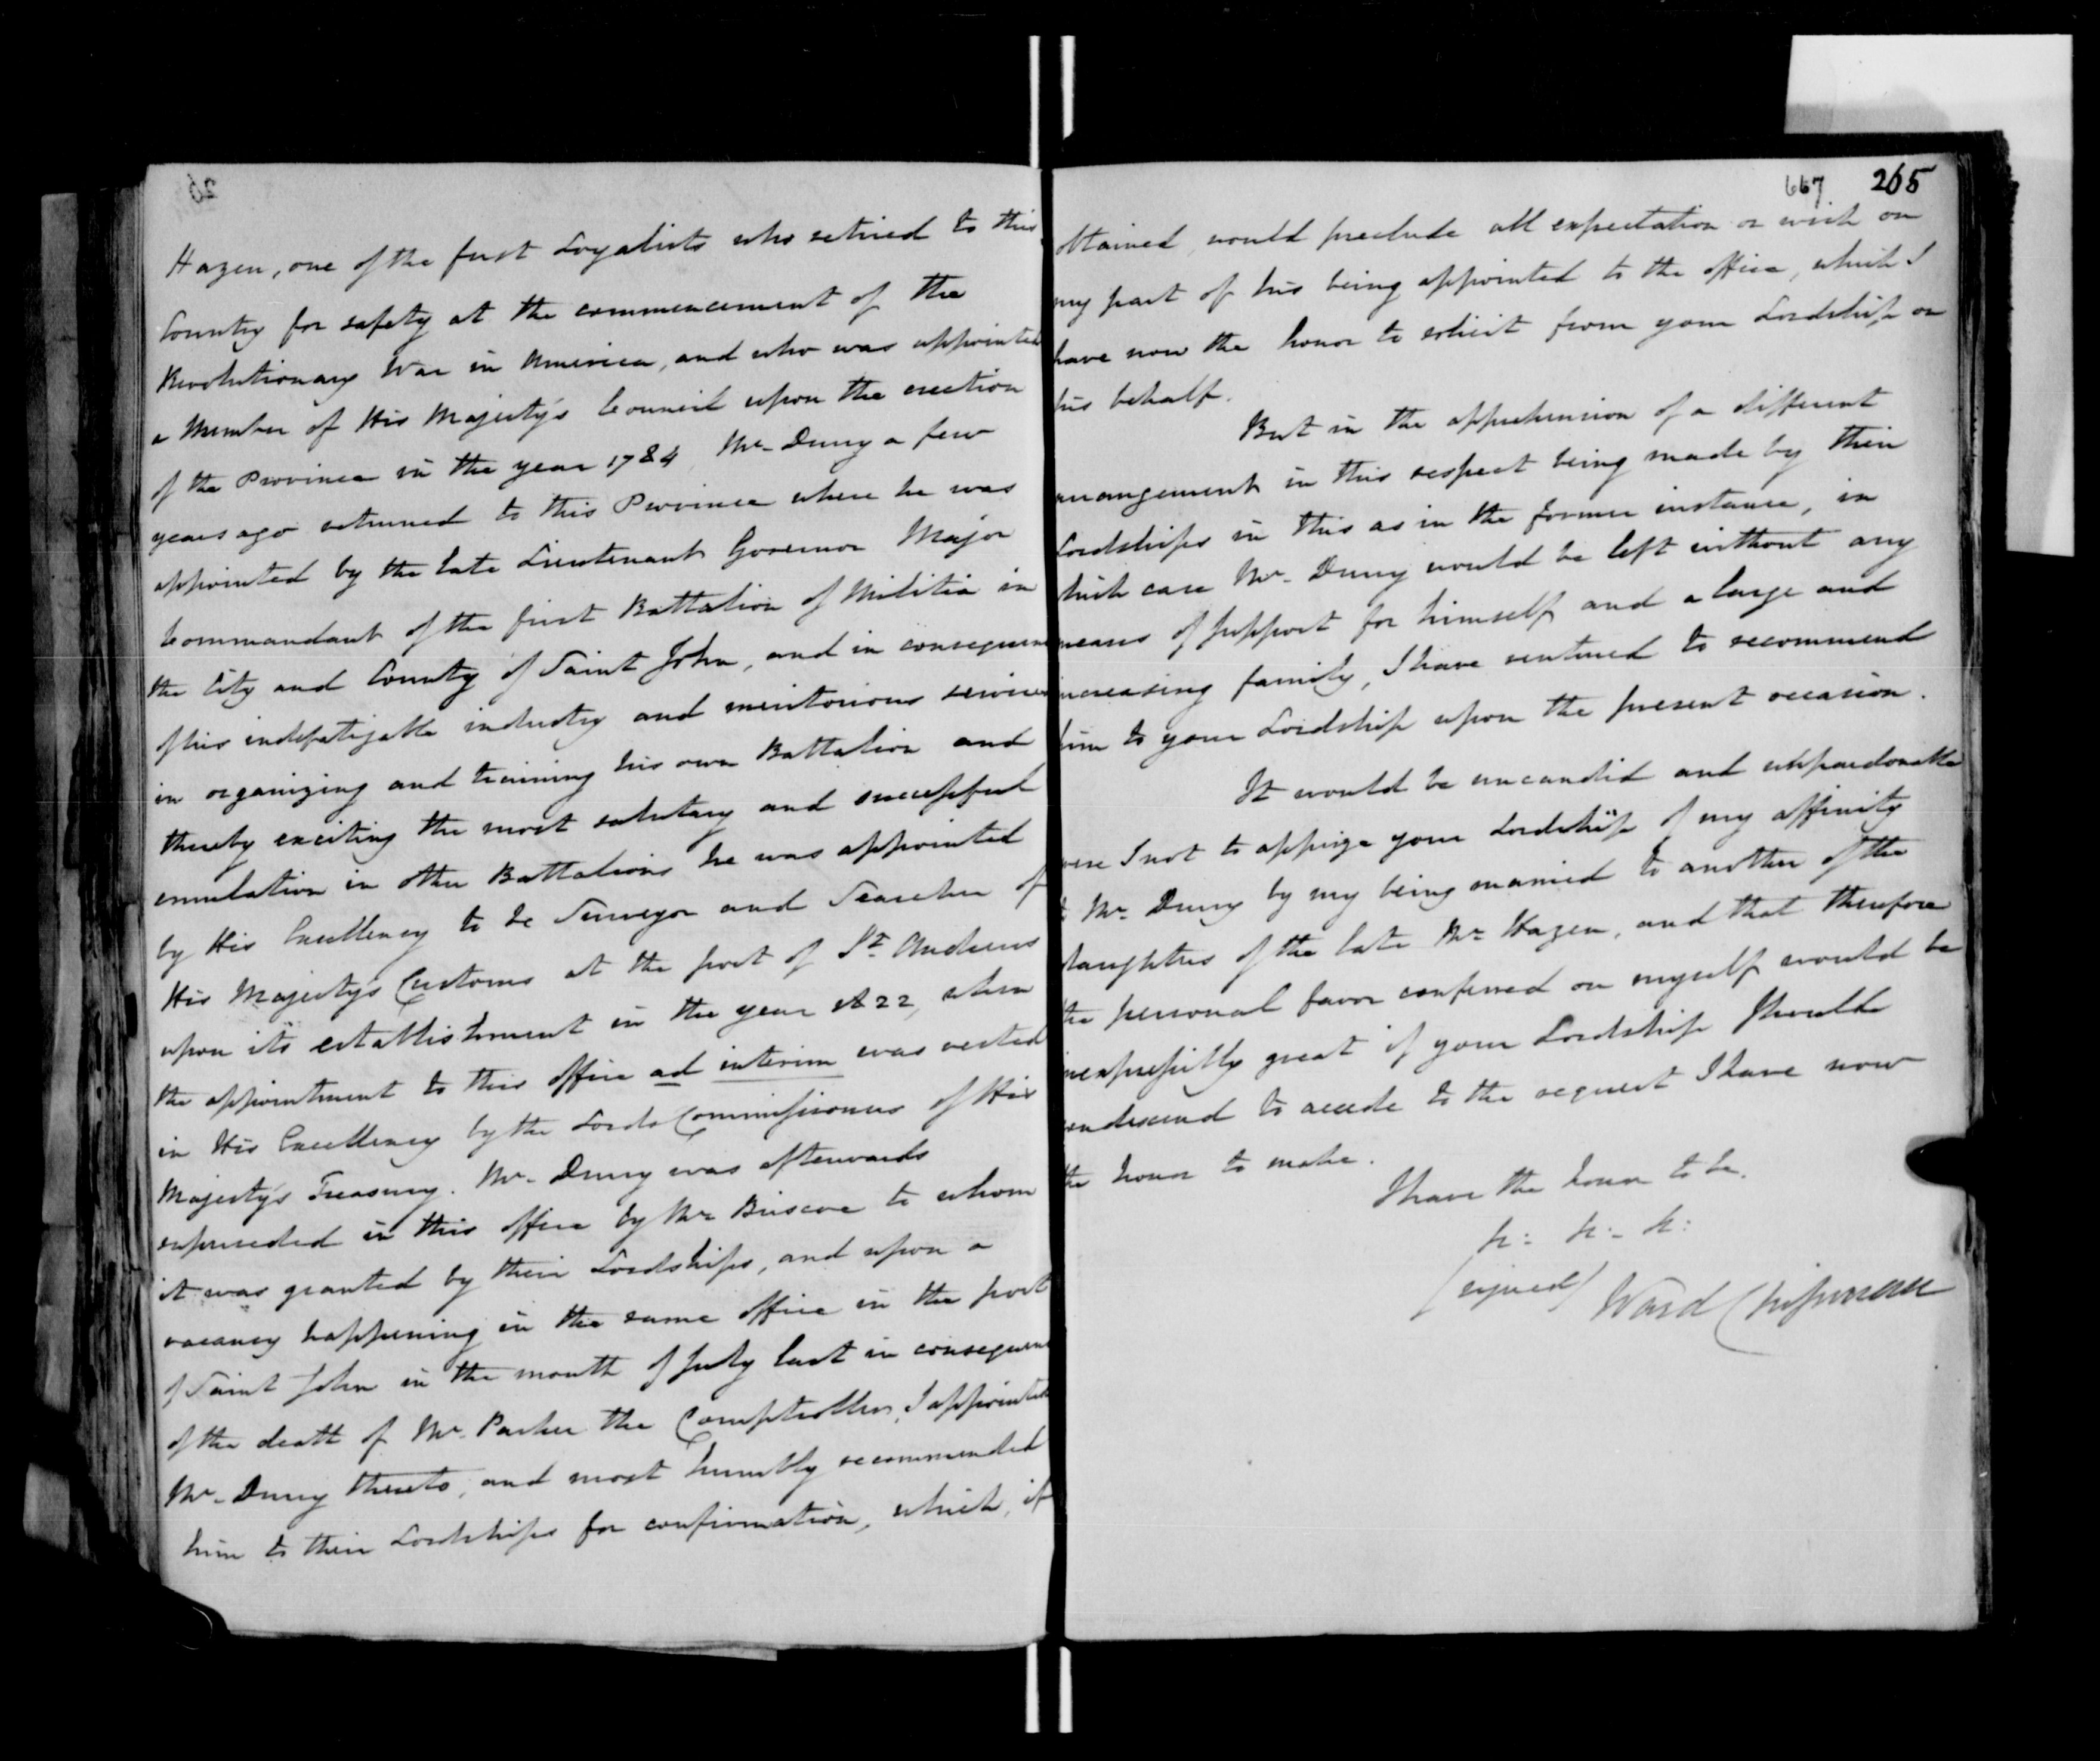 Hazen, one of the first Loyalists who retired to this
Country for safety at the commencement of the
Revolutionary War in America, and who was appointed
a Member of His Majesty's Council upon the erection
of the Province in the year 1784 Mr. Drury a few
years ago returned to this Province where he was
appointed by the late Lieutenant Governor Major
Commandant of the first Battalion of Militia in
the City and County of Saint John, and in consequence
of his indefatigable industry and meritorious services
in organizing and training his own Battalion and
thereby exciting the most salutary and successful
emulation in other Battalions he was appointed
by His Excellency to be Surveyor and Searcher of
His Majesty's Customs at the port of St. Andrews
upon its establishment in the year 1822, when
the appointment to this office ad interim was vested
in His Excellency by the Lords Commissioners of His
Majesty's Treasury. Mr. Drury was afterwards
superseded in this office by Mr. Briscoe to whom
it was granted by their Lordships, and upon a
vacancy happening in the same office in the port
of Saint John in the month of July last in consequence
of the death of Mr. Parker the Comptroller, I appointed
Mr. Drury thereto, and most humbly recommended
him to their Lordships for confirmation, which, if
667 265
obtained, would preclude all expectation or wish on
my part of his being appointed to the office, which I
have now the honor to solicit from your Lordship on
his behalf.
But in the apprehension of a different
arrangement in this respect being made by their
Lordships in this as in the former instance, in
which case Mr. Drury would be left without any
means of support for himself and a large and
increasing family, I have ventured to recommend
him to your Lordship upon the present occasion.
It would be uncandid and unpardonable
were I not to apprize your Lordship of my affinity
to Mr. Drury by my being married to another of the
daughters of the late Mr. Hazen, and that therefore
the personal favor conferred on myself would be
inexpressibly great if your Lordship should
condescend to accede to the request I have now
the honor to make.
I have the honor to be.
(signed) Ward Chipman